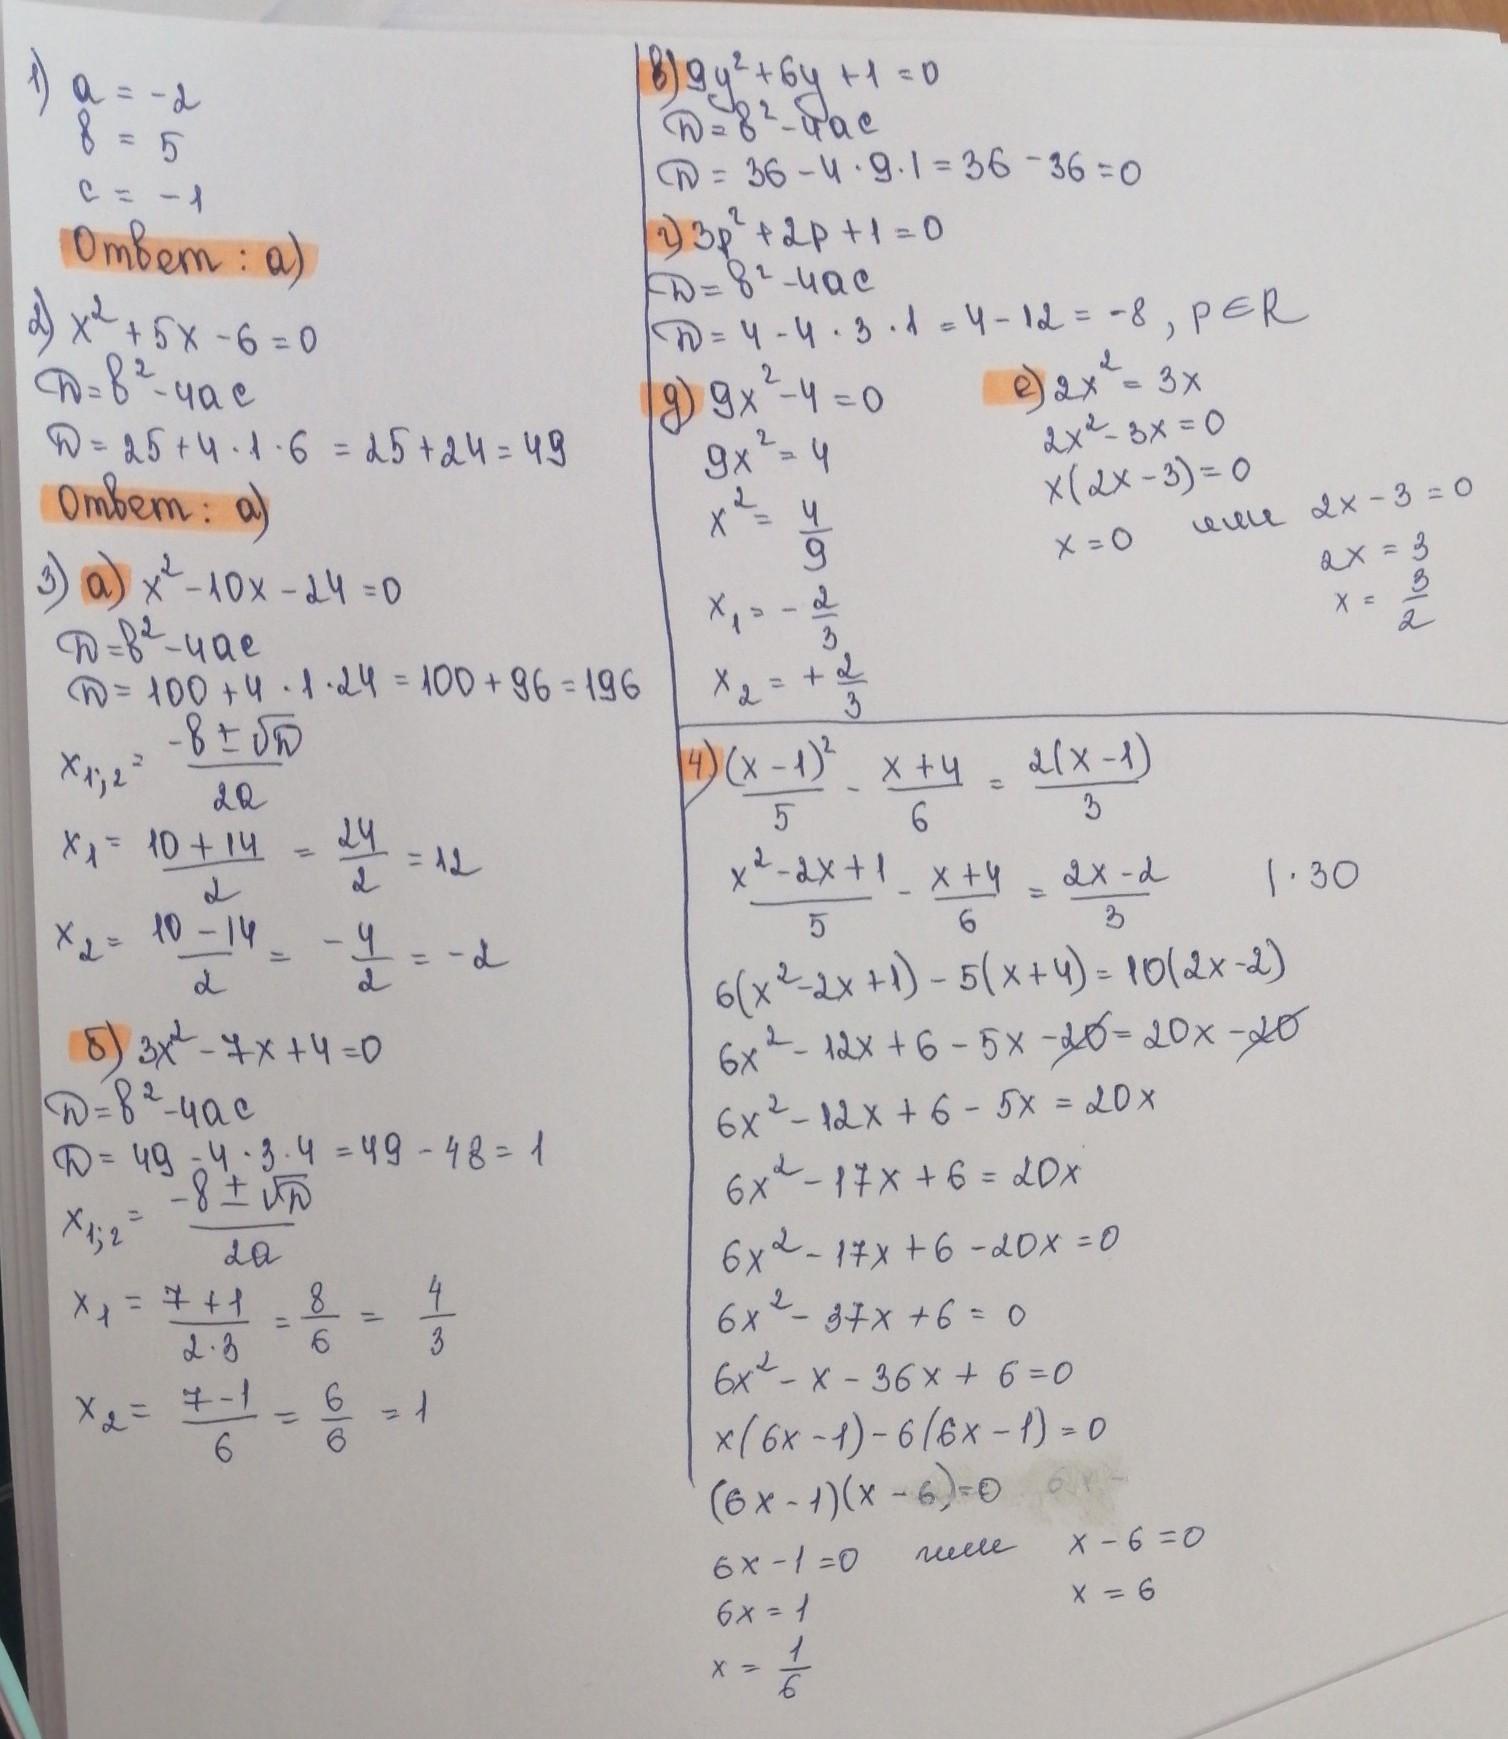 1) a = -2
b = 5
c = -1
Ответ: а)
2) x² + 5x - 6 = 0
D = b² - 4ac
D = 25 + 4 · 1 · 6 = 25 + 24 = 49
Ответ: а)
3) а) x² - 10x - 24 = 0
D = b² - 4ac
D = 100 + 4 · 1 · 24 = 100 + 96 = 196
x₁;₂ = (-b ± √D)/(2a)
x₁ = (10 + 14)/2 = 24/2 = 12
x₂ = (10 - 14)/2 = -4/2 = -2
б) 3x² - 7x + 4 = 0
D = b² - 4ac
D = 49 - 4 · 3 · 4 = 49 - 48 = 1
x₁;₂ = (-b ± √D)/(2a)
x₁ = (7 + 1)/(2·3) = 8/6 = 4/3
x₂ = (7 - 1)/6 = 6/6 = 1
в) 9y² + 6y + 1 = 0
D = b² - 4ac
D = 36 - 4 · 9 · 1 = 36 - 36 = 0
г) 3p² + 2p + 1 = 0
D = b² - 4ac
D = 4 - 4 · 3 · 1 = 4 - 12 = -8, p ∈ R
д) 9x² - 4 = 0
9x² = 4
x² = 4/9
x₁ = - 2/3
x₂ = + 2/3
е) 2x² = 3x
2x² - 3x = 0
x(2x - 3) = 0
x = 0 или 2x - 3 = 0
2x = 3
x = 3/2
4) (x - 1)²/5 - (x + 4)/6 = 2(x - 1)/3
(x² - 2x + 1)/5 - (x + 4)/6 = (2x - 2)/3 | · 30
6(x² - 2x + 1) - 5(x + 4) = 10(2x - 2)
6x² - 12x + 6 - 5x - 20 = 20x - 20
6x² - 12x + 6 - 5x = 20x
6x² - 17x + 6 = 20x
6x² - 17x + 6 - 20x = 0
6x² - 37x + 6 = 0
6x² - x - 36x + 6 = 0
x(6x - 1) - 6(6x - 1) = 0
(6x - 1)(x - 6) = 0
6x - 1 = 0 или x - 6 = 0
6x = 1 x = 6
x = 1/6